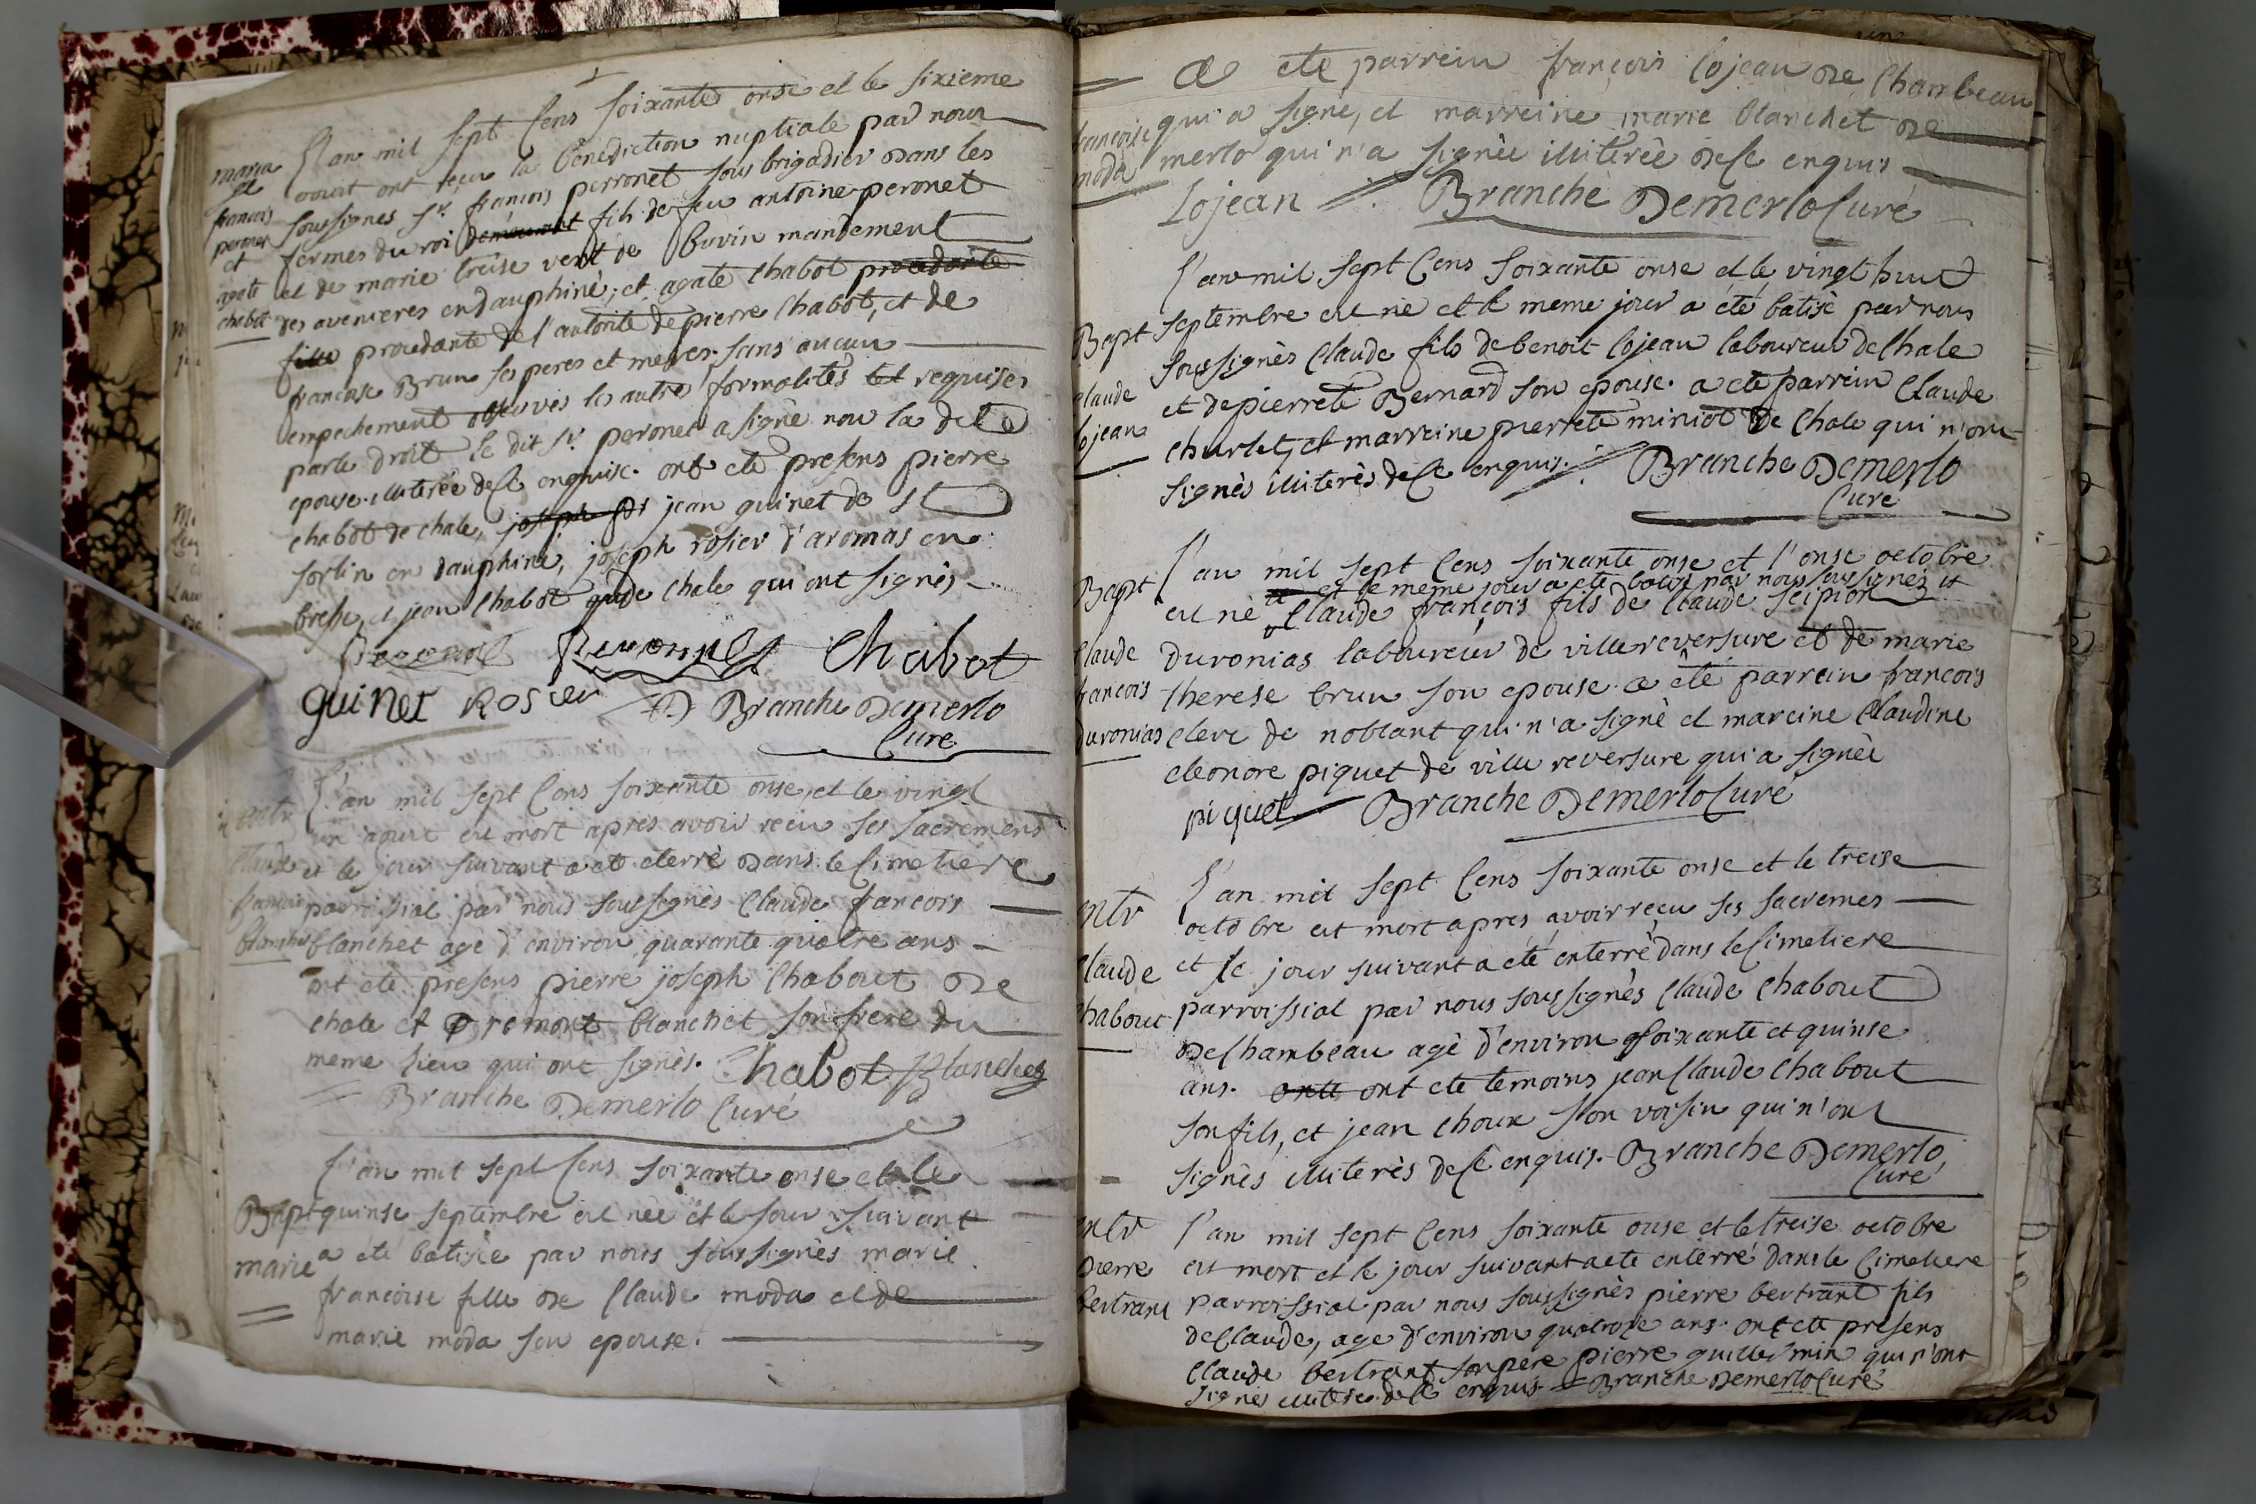 L'an mil sept cens soixante onse et le sixieme
aout ont reçu la benediction nuptiale par nous
soussignes Sr. francois perronet sous brigadier dans les
fermes du roi demeurant fils de feu antoine peronet
et de marie treise vert de buvin mandement
des avenieres en dauphiné, et agate chabot procedante
fille procedante de l'autorité de pierre chabot, et de
francoise Brun ses peres et meres. sans aucun
empechement observés les autres formalités requises
par le droit le dit Sr. peronet a signé non la dite
epouse. illiterée de ce enquise. ont eté presens pierre
chabot de chale, joseph jean guinet de St
sorlin en dauphiné, joseph rosier d'aromas en
bresse, et jean chabot de chale qui ont signés
maria
francois
peronet
et
agate
chabot
Peronnet Chabot
guinet Rosier Branche Demerlo
Curé
L'an mil sept cens soixante onse, et le vingt
un aout est mort apres avoir reçu ses sacremens
et le jour suivant a eté eterré dans le Cimetiere
parroissial par nous soussignés Claude francois
blanchet agé d'environ quarante quatre ans
ont eté presens pierre joseph Chabout de
chale et blanchet son frere du
meme lieu qui ont signés. Chabot Blanchet
Branche Demerlo Curé
entr
Claude
francois
blanchet
L'an mil sept cens soixante onse et le
quinse septembre est née et le jour suivant
a eté batisée par nous soussignés marie
francoise fille de Claude moda et de
marie moda son epouse.
Bapt
marie
a eté parrein françois lojean de Chambeau
qui a signé, et marreine marie blanchet de
merlo qui n'a signée illiterée de ce enquis
Lojean Branche Demerlo Curé
francoise
moda
l'an mil sept cens soixante onse et le vingt huit
septembre est né et le meme jour a été batisé par nous
soussignés Claude fils de benoit lojean laboureur de Chale
et de pierrete Bernard son epouse. a eté parrein Claude
churlet, et marreine pierrete miniot de Chale qui n'ont
signés illiterés de ce enquis. Branche Demerlo
Curé
Bapt
Claude
lojean
l'an mil sept cens soixante onse et l'onse octobre
et le meme jour a eté batisé par nous soussignés
est né Claude françois fils de Claude Scipion
duronias laboureur de villereversure et de marie
therese brun son epouse. a eté parrein francois
clerc de noblant qui n'a signé et mareine Claudine
eleonore piquet de ville reversure qui a signée
piquet Branche Demerlo Curé
Bapt
Claude
francois
duronias
L'an mil sept cens soixante onse et le treise
octobre est mort apres avoir reçu ses sacremes
et le jour suivant a eté enterré dans le Cimetiere
parroissial par nous soussignés Claude Chabout
de Chambeau agé d'environ soixante et quinse
ans. ont eté temoins jean Claude Chabout
son fils, et jean choux son voisin qui n'ont
signés illiterés de ce enquis. Branche Demerlo
Curé
entr
Claude
Chabout
l'an mil sept cens soixante onse et le treise octobre
est mort et le jour suivant a eté enterré dans le Cimetiere
parroissial par nous soussignés pierre bertrant fils
de Claude, age d'environ quatorze ans. ont eté presens
Claude bertrant son pere pierre guillermin qui n'ont
signés illiterés de ce enquis Branche Demerlo Curé
entr
Pierre
bertrant